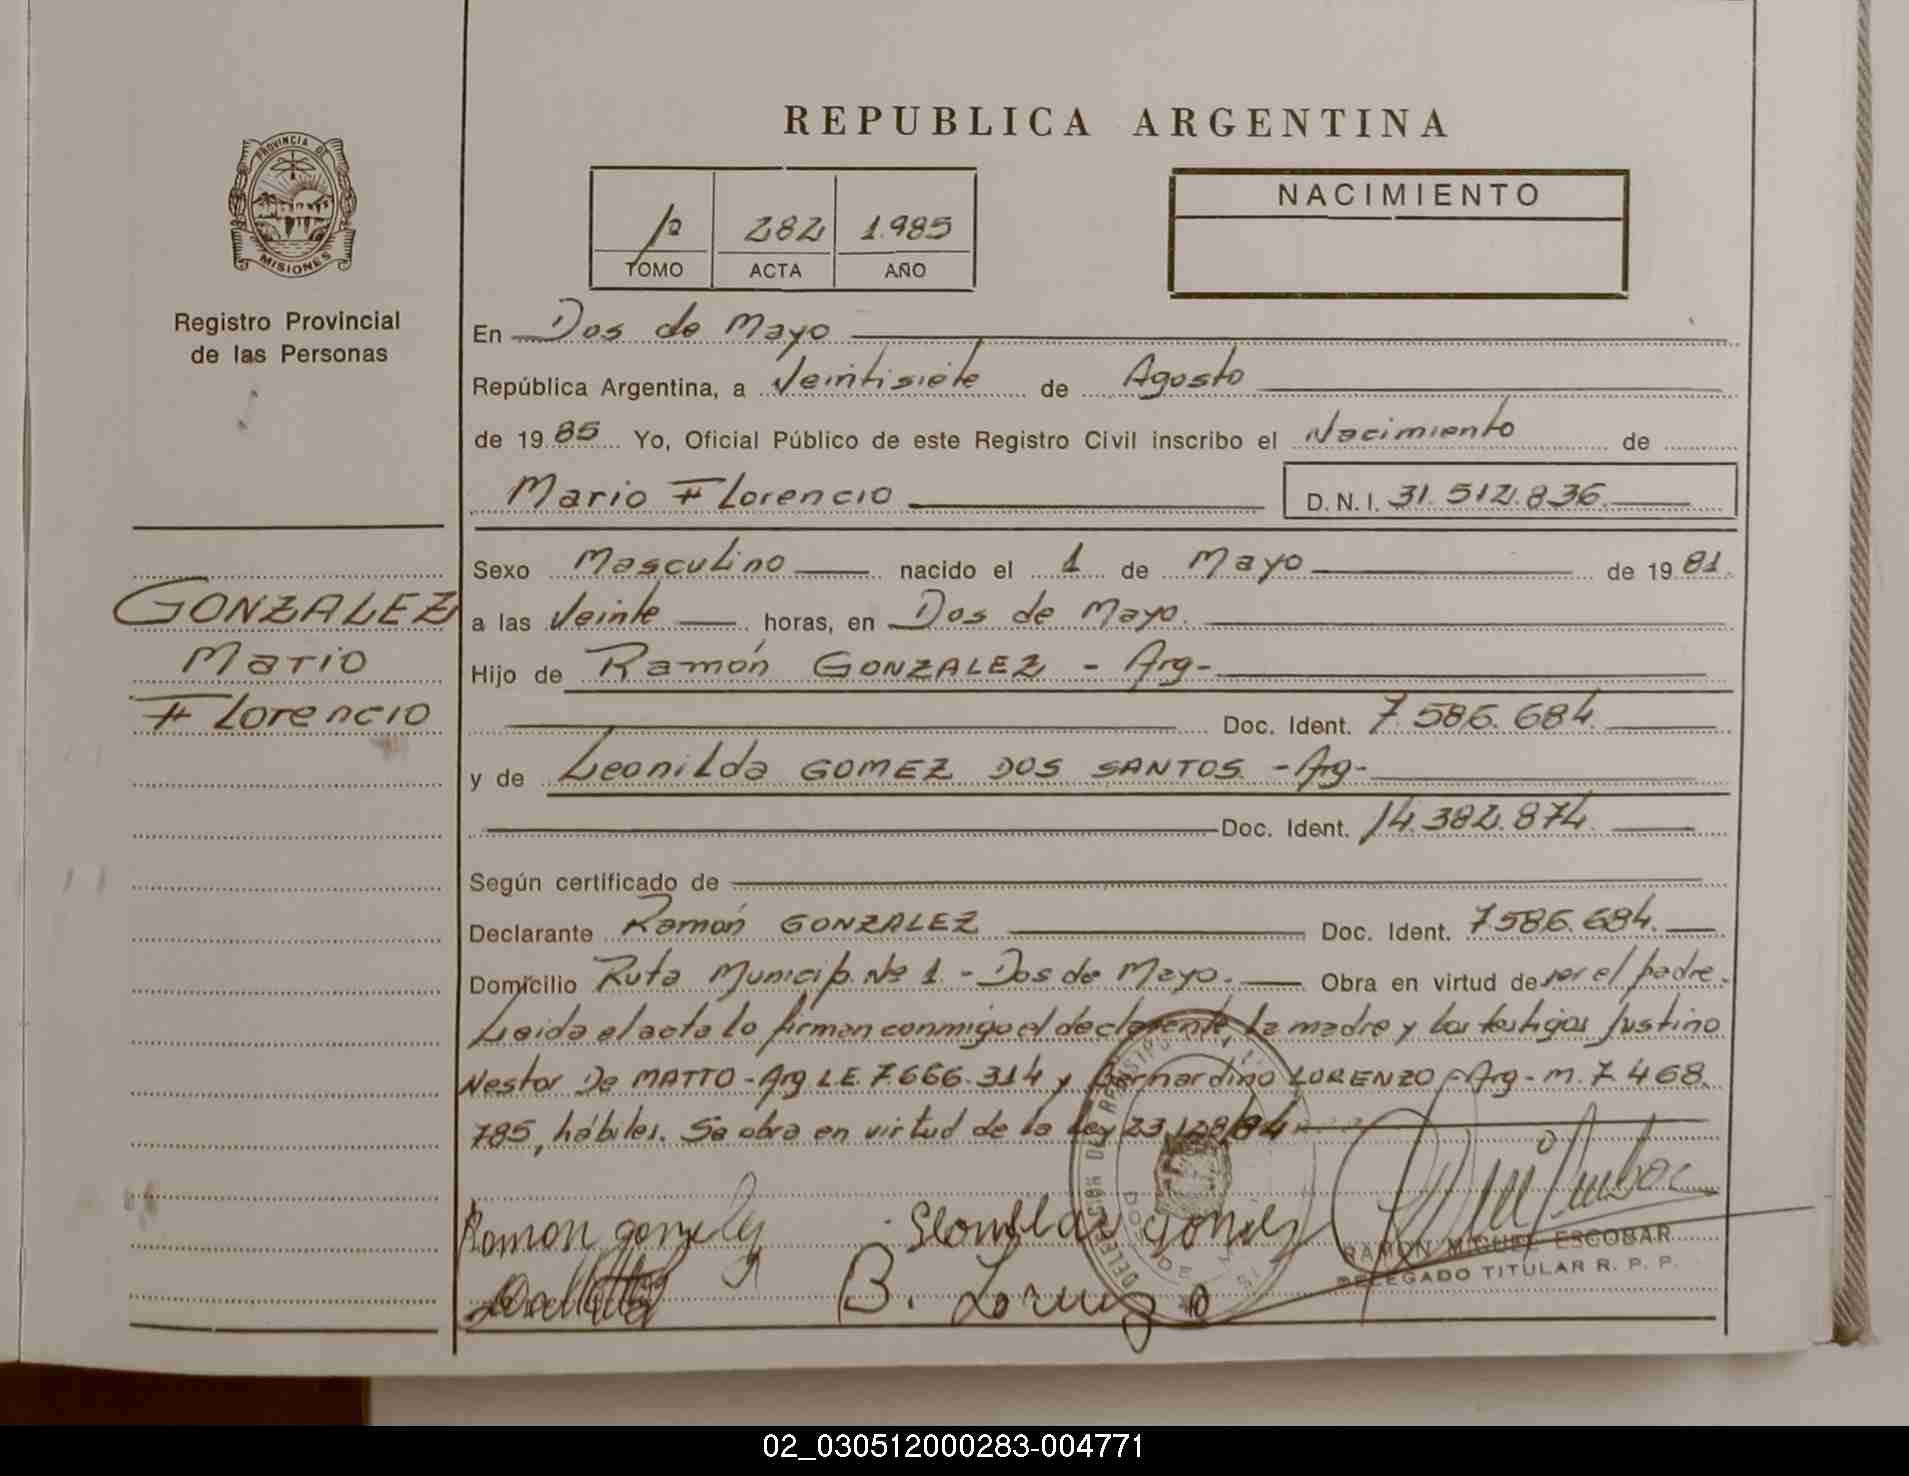 REPUBLICA ARGENTINA
PROVINCIA DE
MISIONES
Registro Provincial
de las Personas
1º 282 1.985
TOMO ACTA AÑO
NACIMIENTO
En Dos de Mayo
República Argentina, a Veintisiete de Agosto
de 19 85 Yo, Oficial Público de este Registro Civil inscribo el Nacimiento de
Mario Florencio D. N. I. 31.512.836.
GONZALEZ
Mario
Florencio
Sexo Masculino nacido el 1 de Mayo de 19 81.
a las Veinte horas, en Dos de Mayo.
Hijo de Ramón GONZALEZ - Arg-
Doc. Ident. 7.586.684.
y de Leonilda GOMEZ DOS SANTOS - Arg-
Doc. Ident. 14.382.874.
Según certificado de
Declarante Ramón GONZALEZ Doc. Ident. 7.586.684.
Domicilio Ruta Municip. Nº 1 - Dos de Mayo. Obra en virtud de ser el padre.
Leida el acta lo firman conmigo el declarente la madre y los testigos Justino
Nestor De MATTO - Arg L.E. 7.666.314 y Bernardino LORENZO - Arg - M. 7.468.
785, hábiles. Se obra en virtud de la ley 23.128/84
Ramon gonzalez
B. Lorenzo
RAMON MIGUEL ESCOBAR
DELEGADO TITULAR R. P. P.
02_030512000283-004771